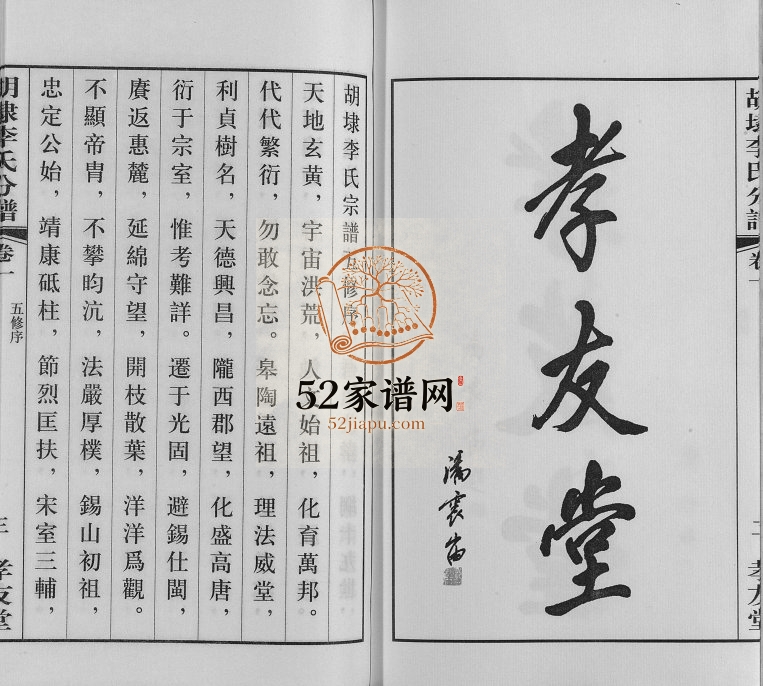 胡埭李氏分譜
卷一
二 孝友堂
孝友堂
胡埭李氏宗譜五修序
天地玄黄，宇宙洪荒，人文始祖，化育萬邦。
代代繁衍，勿敢念忘。皋陶遠祖，理法威堂，
利貞樹名，天德興昌，隴西郡望，化盛高唐，
衍于宗室，惟考難詳。遷于光固，避錫仕閩，
賡返惠麓，延綿守望，開枝散葉，洋洋爲觀。
不顯帝胄，不攀昀沆，法嚴厚樸，錫山初祖，
忠定公始，靖康砥柱，節烈匡扶，宋室三輔，
胡埭李氏分譜
卷一
五修序
三 孝友堂
52家谱网
52jiapu.com